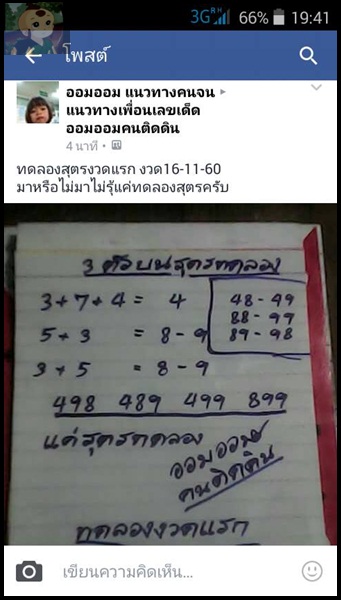 3G 66% 19:41
โพสต์
ออมออม แนวทางคนจน ▸
แนวทางเพื่อนเลขเด็ด
ออมออมคนติดดิน
4 นาที ·
ทดลองสุตรงวดแรก งวด16-11-60
มาหรือไม่มาไม่รุ้แค่ทดลองสุตรครับ
3 ตัวบนสุตรทดลอง
3+7+4 = 4
48 - 49
88 - 99
89 - 98
5+3 = 8 - 9
3+5 = 8 - 9
498 489 499 899
แค่สุตรทดลอง
ออมออม
คนติดดิน
ทดลองงวดแรก
เขียนความคิดเห็น...